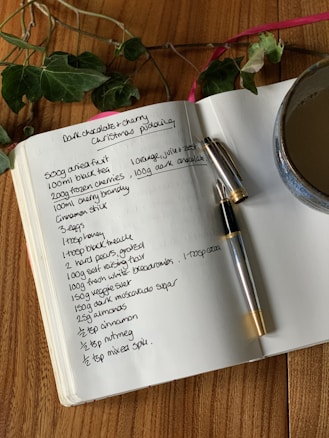 Dark chocolate + cherry
Christmas pudding
500g dried fruit
100ml black tea
200g frozen cherries
100ml cherry brandy
Cinnamon stick
1 orange, juice + zest
100g dark
3 eggs
1 tbsp honey
1 tbsp black treacle
2 hard pears, grated
100g self raising flour
100g fresh white breadcrumbs
150g veggie suet
150g dark muscovado sugar
25g almonds
½ tsp cinnamon
½ tsp nutmeg
½ tsp mixed spice.